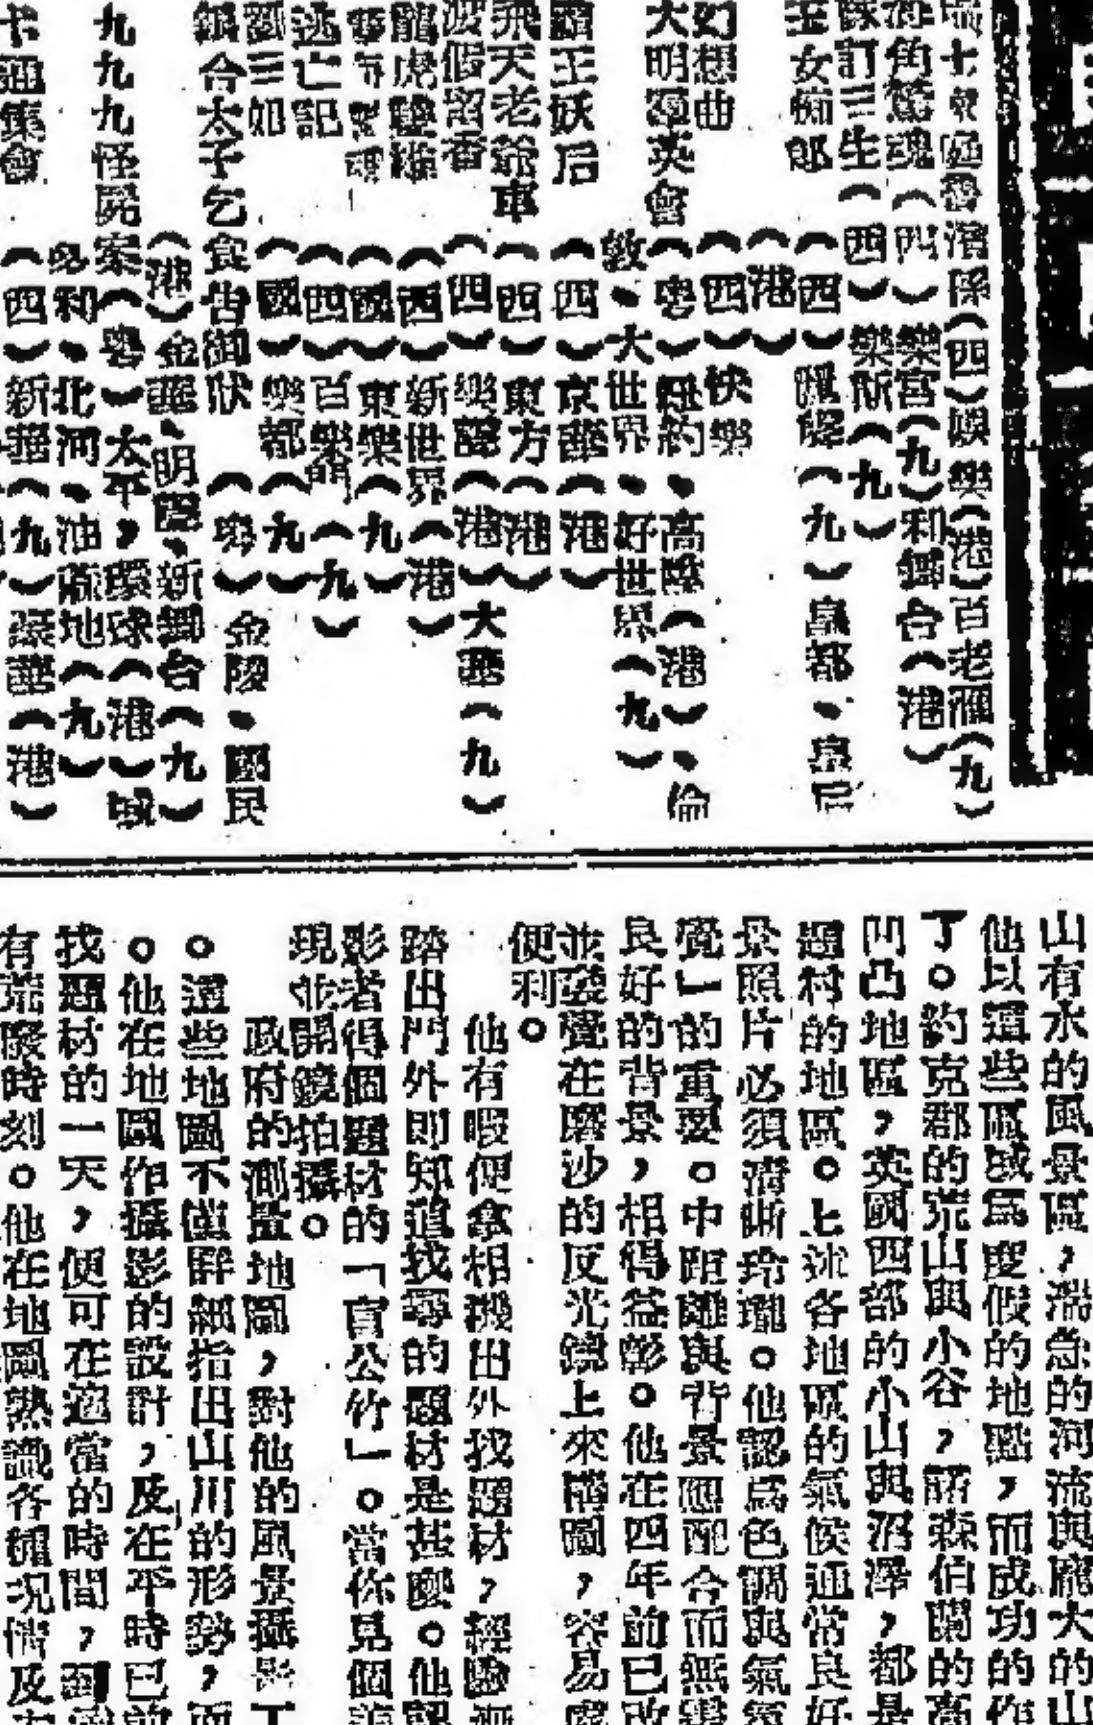 瑞士家庭魯濱孫（西）娛樂（港）百老滙（九）
海角驚魂（西）樂宮（九）利舞台（港）
訂三生（西）樂斯（九）
玉女痴郎（西）麗聲（九）皇都、皇后
（港）
幻想曲（西）快樂
大明羣英會（粵）紐約、高陞（港）、倫
敦、大世界、好世界（九）
羅王妖后（西）京華（港）
飛天老爺車（西）東方（港）
波假留香（西）樂聲（港）大華（九）
龍虎雙雄（西）新世界（港）
（國）東樂（九）
逃亡記（西）百樂門（九）
劉三姐（國）樂都（九）
鍘合太子乞食告御狀（粵）金陵、國民
（港）金華、明園、新舞台（九）
九九九怪屍案（粵）太平，環球（港）城
必利、北河、油蔴地（九）
卡通集會（西）新華（九）豪華（港）
山有水的風景區，湍急的河流與龐大的山
他以這些區域爲度假的地點，而成功的作
了。約克郡的荒山與小谷，諾森伯蘭的高
凹凸地區，英國西部的小山與沼澤，都是
題材的地區。上述各地區的氣候通常良好
景照片必須清晰玲瓏。他認爲色調與氣氛
覺」的重要。中距離與背景應配合而無
良好的背景，相得益彰。他在四年前已改
並發覺在磨沙的反光鏡上來構圖，容易處
便利。
他有暇便拿相機出外找題材，經驗
踏出門外即知道找尋的題材是甚麼。他認
影者得個題材的「盲公竹」。當你見個
現並開鏡拍攝。
政府的測量地圖，對他的風景攝影工
。這些地圖不僅詳細指出山川的形勢，而
。他在地圖作攝影的設計，及在平時已前
找題材的一天，便可在適當的時間，到
有荒廢時刻。他在地圖熟識各種況情及